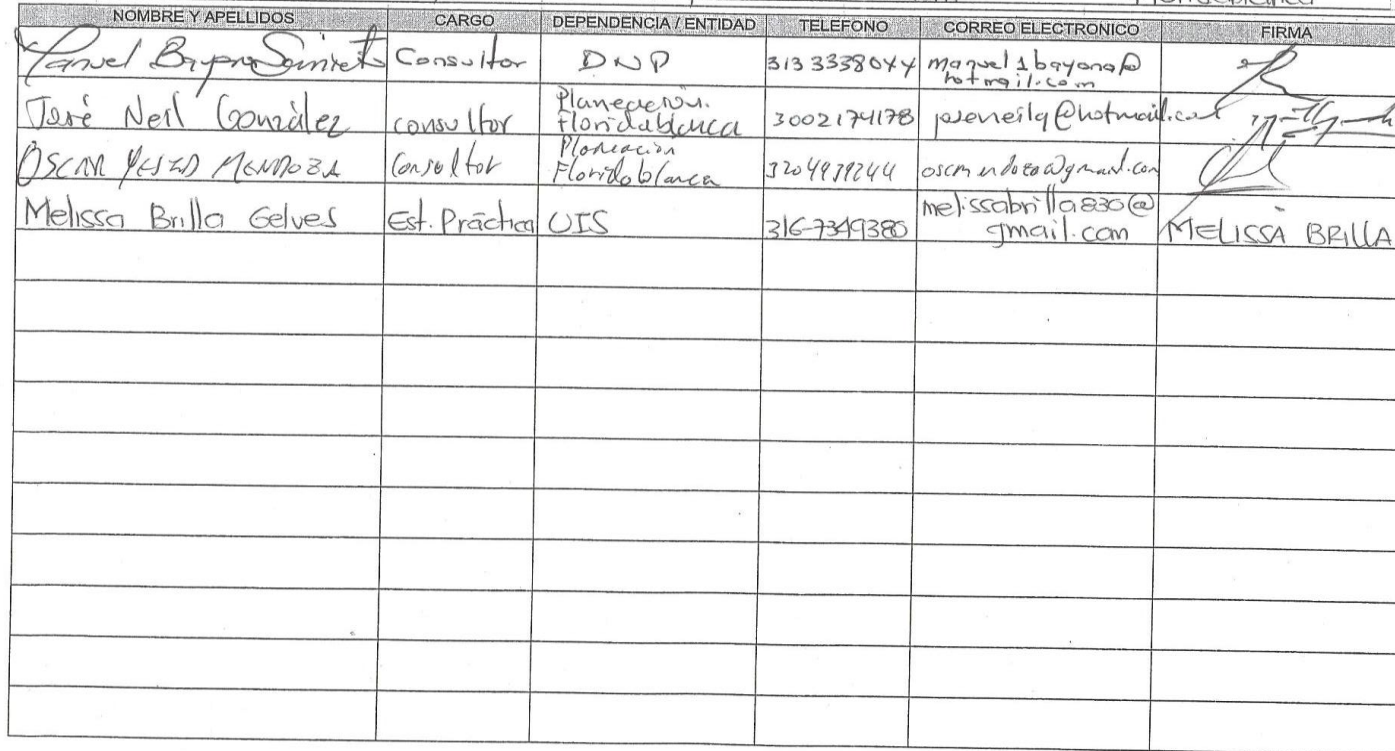 NOMBRE Y APELLIDOS CARGO DEPENDENCIA / ENTIDAD TELEFONO CORREO ELECTRONICO FIRMA
Manuel Bayona Consultor DNP 313 3338044 manuel1bayona@
hotmail.com
José Neil González consultor Planeación. 3002174178 joseneilg@hotmail.com
Floridablanca
OSCAR YESID MENDOZA Consultor Planeación
Floridablanca
Melissa Brilla Gelves Est. Práctica UIS 316-7349380 melissabrilla830@
gmail.com MELISSA BRILLA